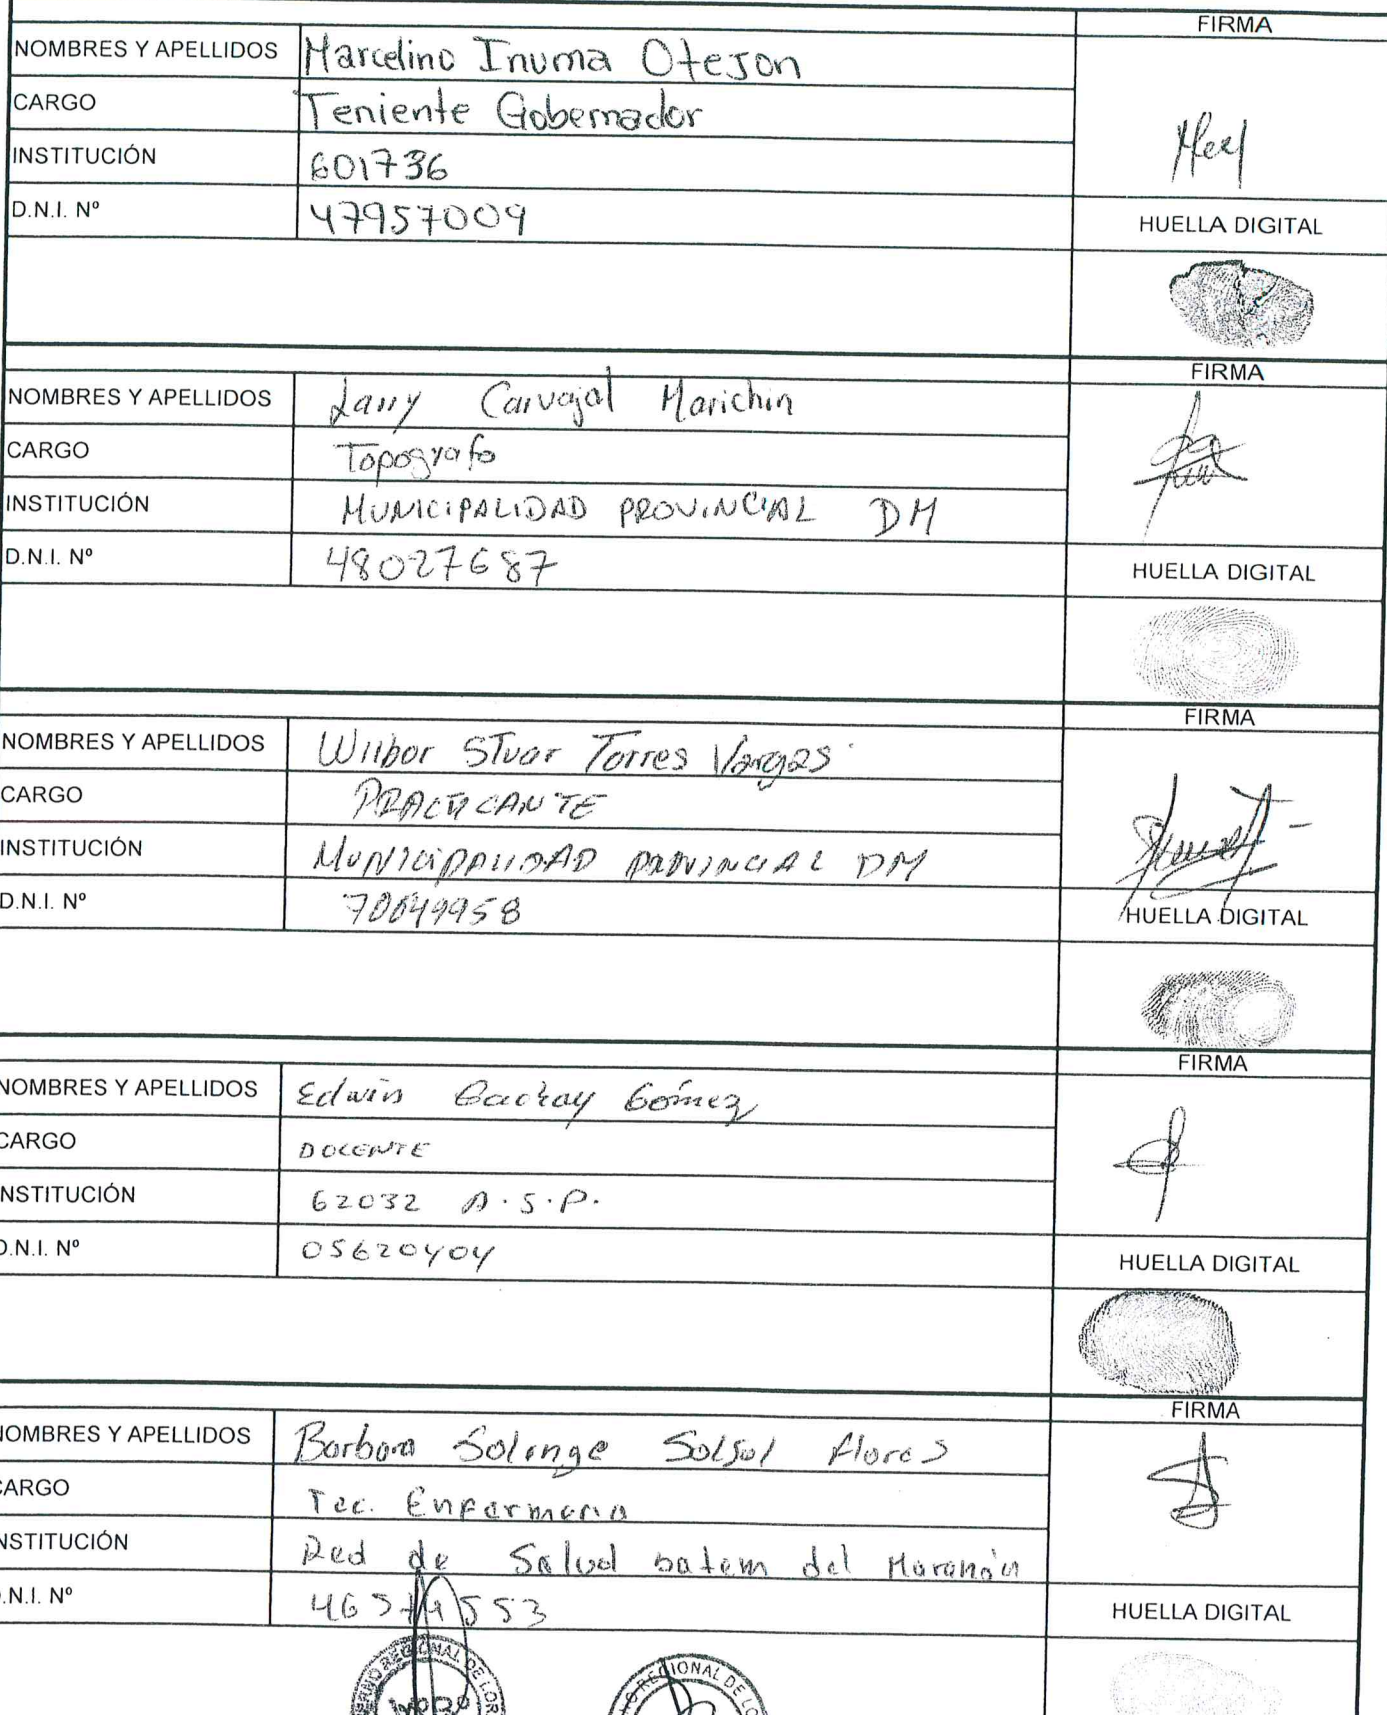 FIRMA
NOMBRES Y APELLIDOS Marcelino Inuma Otejon
CARGO Teniente Gobernador
INSTITUCIÓN 601736
D.N.I. Nº 47957009
HUELLA DIGITAL
FIRMA
NOMBRES Y APELLIDOS Larry Carvajal Marichin
CARGO Topografo
INSTITUCIÓN MUNICIPALIDAD PROVINCIAL DM
D.N.I. Nº 48027687
HUELLA DIGITAL
FIRMA
NOMBRES Y APELLIDOS Wilbor STuar Torres Vargas
CARGO PRACTICANTE
INSTITUCIÓN MUNICIPALIDAD PROVINCIAL DM
D.N.I. Nº
HUELLA DIGITAL
FIRMA
NOMBRES Y APELLIDOS Edwin Gómez
CARGO DOCENTE
INSTITUCIÓN 62032 A.S.P.
D.N.I. Nº 05620404
HUELLA DIGITAL
FIRMA
NOMBRES Y APELLIDOS Barbara Solange Solsol Flores
CARGO Tec. Enfermeria
INSTITUCIÓN Red de Salud Datem del Marañón
D.N.I. Nº
HUELLA DIGITAL
REGIONAL DE
REGIONAL DE